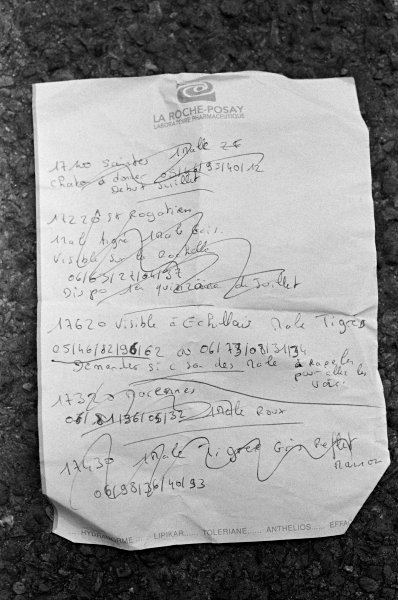 LA ROCHE-POSAY
LABORATOIRE PHARMACEUTIQUE
17100 Saintes 1 Male
Chats a donner 05/46/95/40/12
Debut Juillet
17220 St Rogatien
1 Male Tigré 1 Male Gris
Visible sur la Rochelle
06/63/27/04/37
Dispo 1er quinzaine de Juillet
17620 Visible à Echillais Male Tigré
05/46/82/96/62 ou 06/73/08/31/34
Demander si c des Male à rapeler
pour aller les
voir.
17320 Marennes
06/81/36/05/32 1 Male Roux
17430 1 Male Tigrée Gris Reflet
Marron
06/98/36/40/93
... HYDRANORME ...... LIPIKAR...... TOLERIANE...... ANTHELIOS...... EFFAC